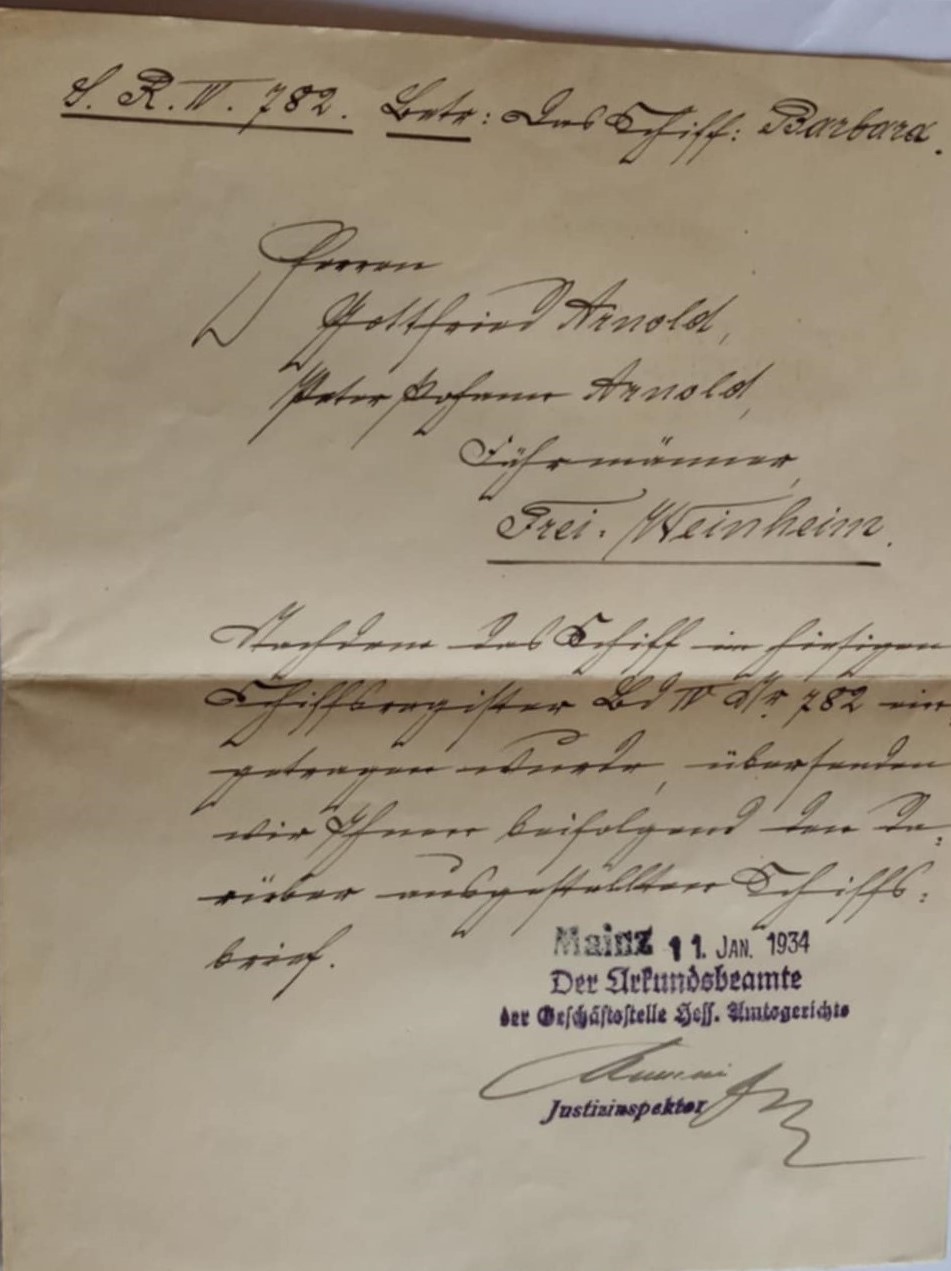 S. R. IV. 782. Betr: Das Schiff: Barbara.
Herren
Gottfried Arnold,
Peter Johann Arnold,
Fährmänner,
Frei-Weinheim.
Nachdem das Schiff im hiesigen
Schiffsregister Bd IV Nr. 782 ein
getragen wurde, übersenden
wir Ihnen beifolgend den da:
rüber ausgestellten Schiffs:
brief.
Mainz 11. JAN. 1934
Der Urkundsbeamte
der Geschäftsstelle Hess. Amtsgerichts
Justizinspektor